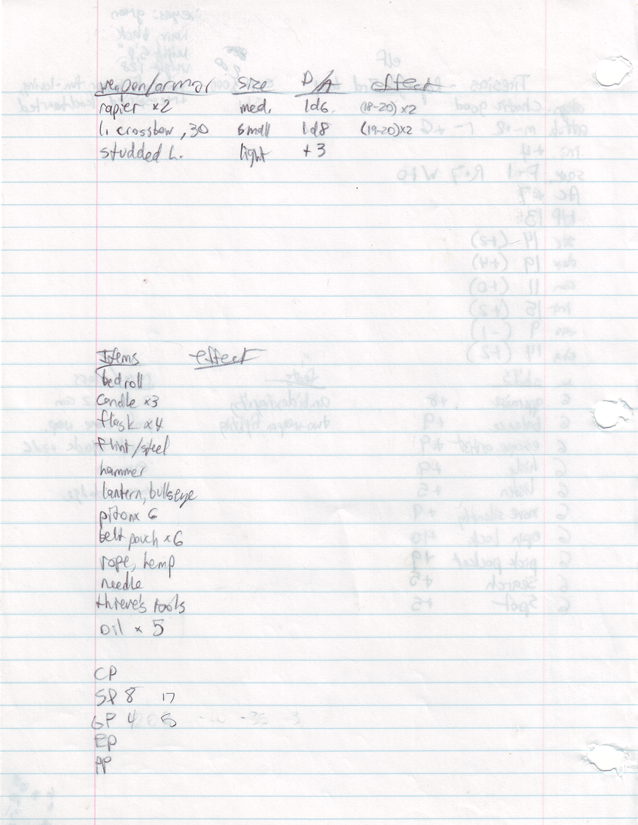 weapon/armor size D/A effect
rapier x2 med. 1d6 (18-20)x2
l. crossbow, 30 small 1d8 (19-20)x2
studded L. light +3
Items effect
bedroll
candle x3
flask x4
flint/steel
hammer
lantern, bullseye
piton x 6
belt pouch x6
rope, hemp
needle
thieve's tools
oil x 5
CP
SP 8 17
GP 4 5
EP